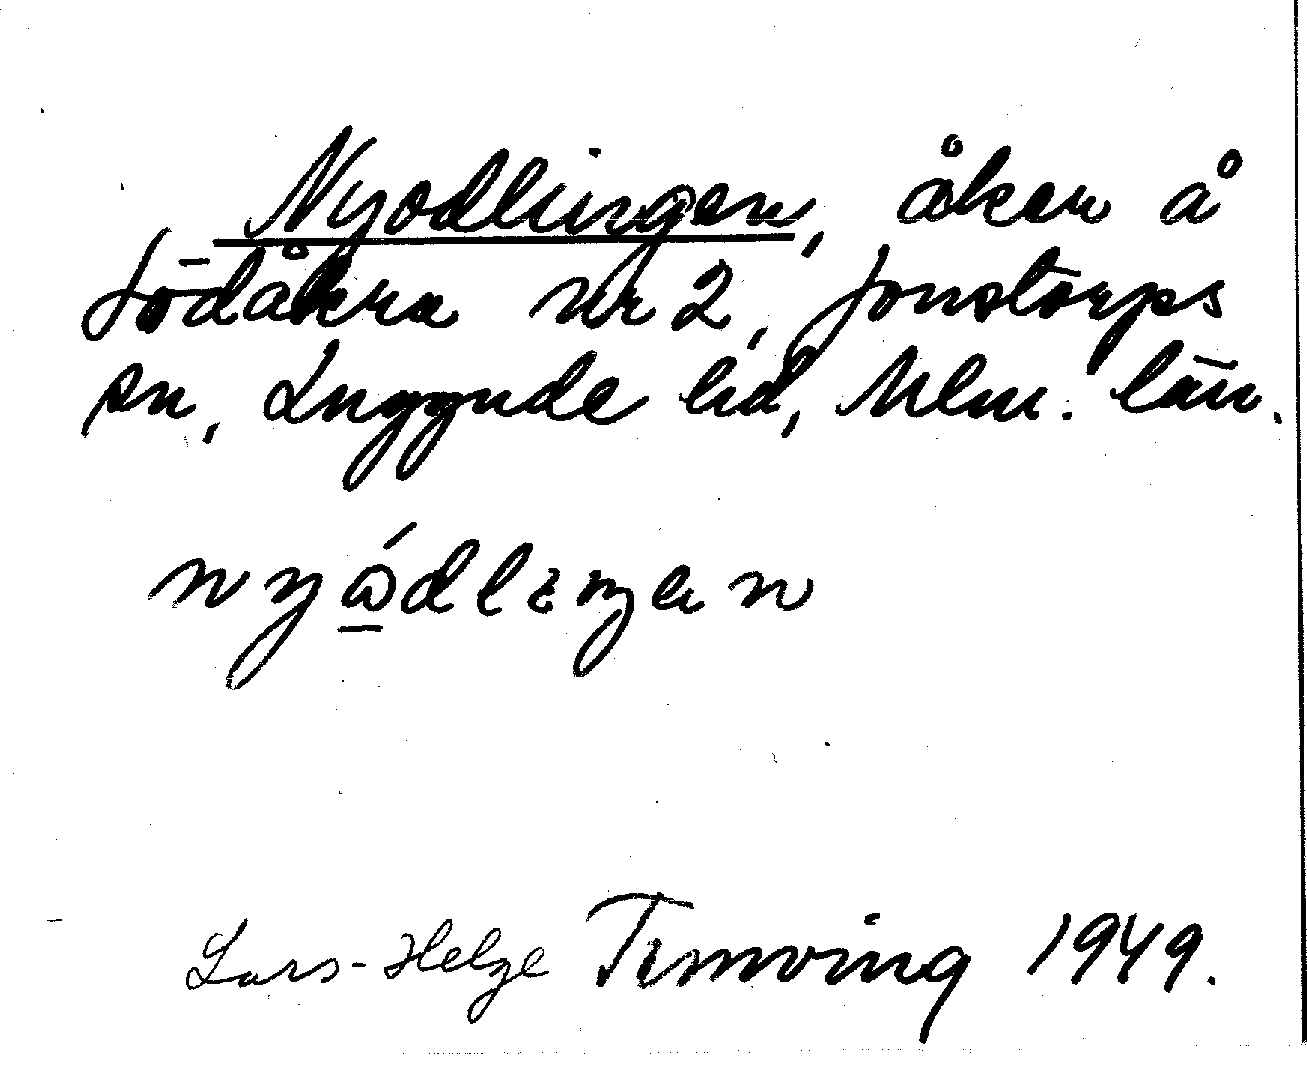 Nyodlingen, åker å
Södåkra nr 2, Jonstorps
sn, Luggude hd, Mlm. län.
nyɷ̲́dlɩŋan
Lars-Helge 1949.